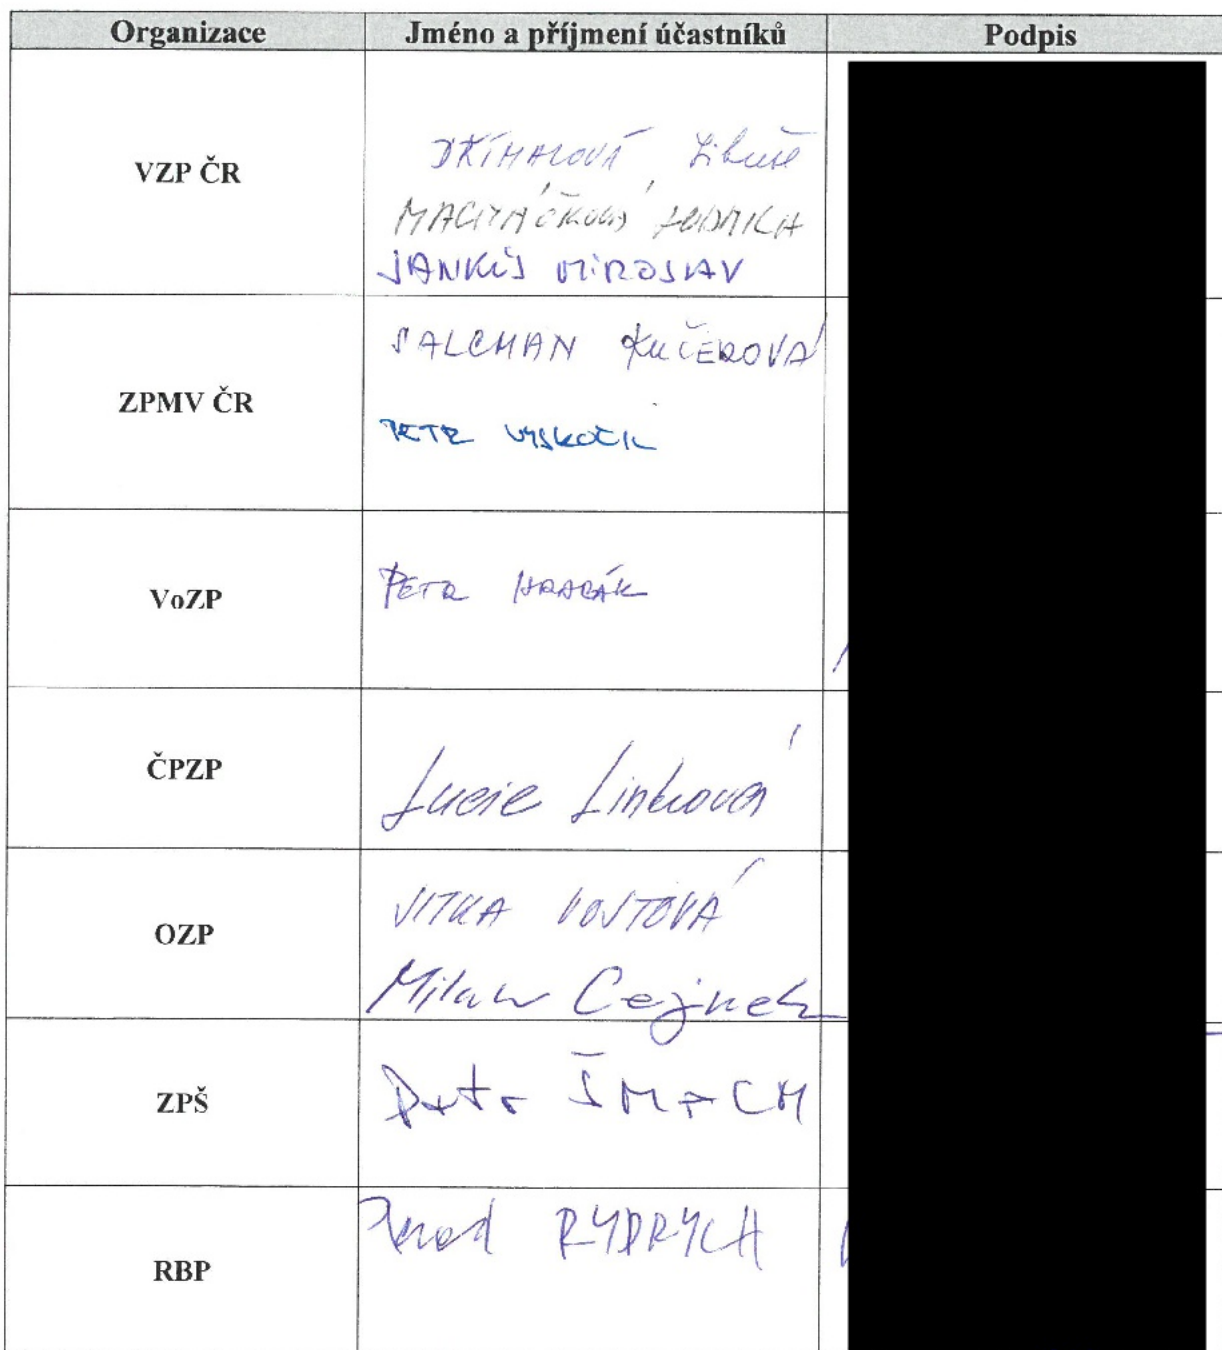 Organizace Jméno a příjmení účastníků Podpis
VZP ČR
DŘÍMALOVÁ Libuše
LUDMILA
JANKŮJ MIROSLAV
ZPMV ČR
SALCMAN KUČEROVÁ
PETR VYSKOČIL
VoZP
PETR HRABÁK
ČPZP
Lucie Linková
OZP
JITKA VOJTOVÁ
Milan Cejnek
ZPŠ
Petr ŠMACH
RBP
RYDRYCH